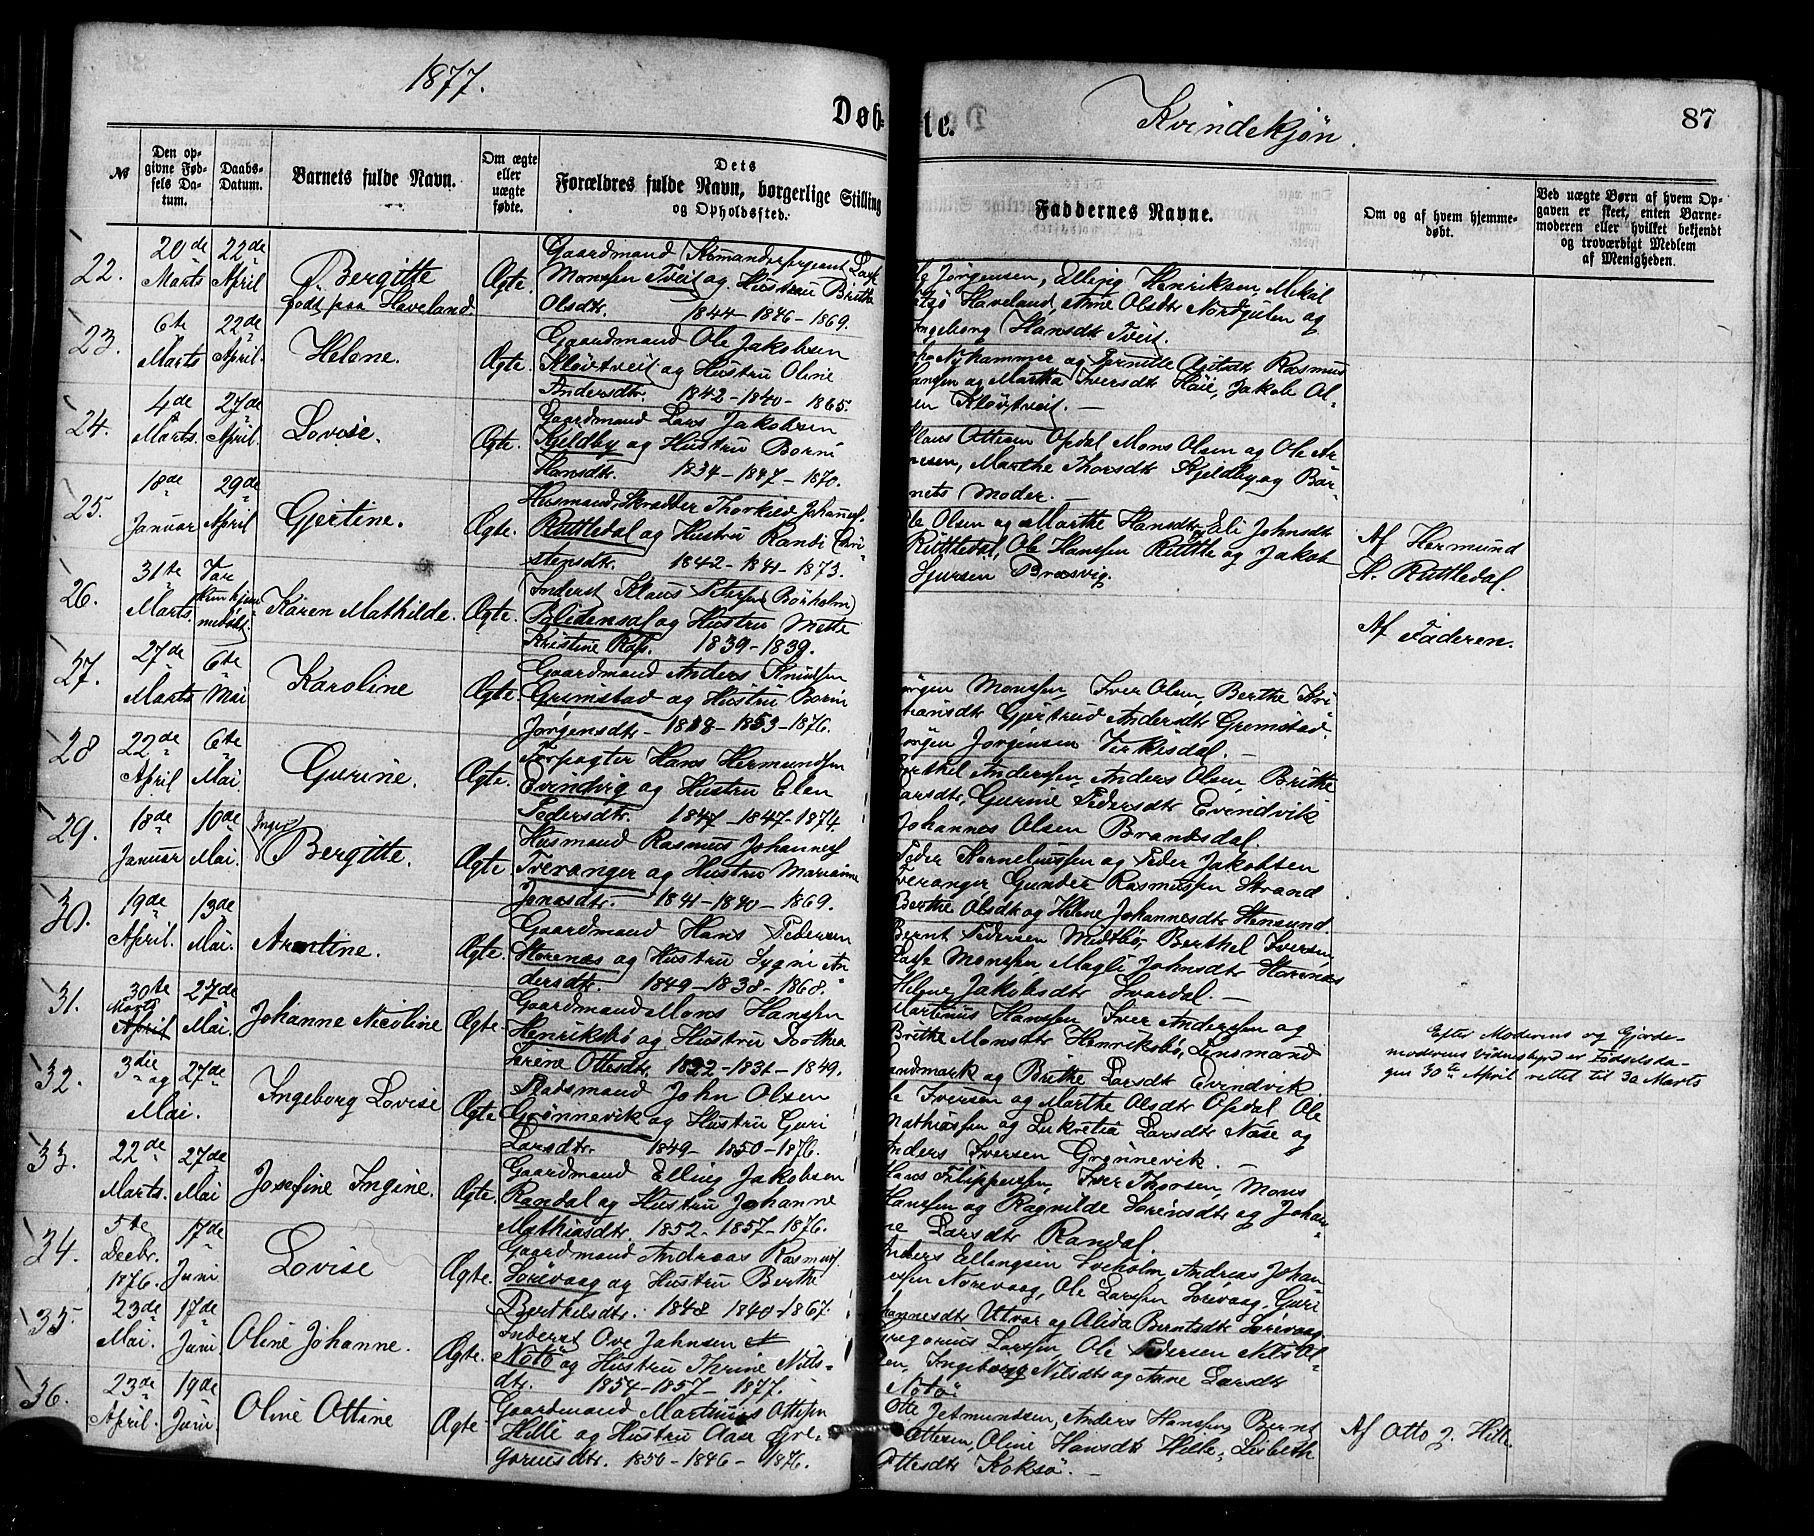 1877.
Døb-
te.
Kvindekjøn.
87
№
Den op-
givne Fød-
sels Da-
tum.
Daabs-
Datum.
Barnets fulde Navn.
Om ægte
eller
uægte
fødte.
Dets
Forældres fulde Navn, borgerlige Stilling
og Opholdssted.
Faddernes Navne.
Om og af hvem hjemme-
døbt.
Ved uægte Børn af hvem Op-
gaven er skeet, enten Barne-
moderen eller hvilket bekjendt
og troværdigt Medlem
af Menigheden.
22.
20de
Marts
22de
April
Bergitte
født paa Haveland
Ægte.
Gaardmand
Monssen Tveit og Hustru Brithe
Olsdtr. 1844-1846-1869.
Jørgensen, Elling Henriksen, Mikal
Haveland, Anne Olsdtr Nordgulen og
Ingeborg Hansdtr Tveit.
23.
6te
Marts
22de
April.
Helene.
Ægte.
Gaardmand Ole Jakobsen
Kløvtveit og Hustru Oline
Andersdtr. 1842-1840-1865.
Nyhammer og Pernille Rasmus
og Martha Iversdtr Høie, Jakob Ol-
sen Kløvtveit.
24.
4de
Marts.
27de
April.
Lovise.
Ægte.
Gaardmand Lars Jakobsen
Kjeldby og Hustru Borni
Hansdtr. 1834-1847-1870.
Klaus Ottesen Opdal Mons Olsen og Ole Ar-
nesen, Marthe Thorsdtr Kjeldby og Bar-
nets Moder.
25.
18de
Januar
29de
April
Gjertine.
Ægte.
Husmand, Skrædder Thorkild Johannes.
Ruttledal og Hustru Randi Chri-
stensdtr. 1842-1841-1873.
Ole Olsen og Marthe Hansdtr, Eli Johnsdtr
Ruttledal, Ole Hanssen Rutle og Jakob
Sjursen Bræsvig.
Af Hermund
A. Ruttledal.
26.
31te
Marts.
Var
kun hjem-
medøbt.
Karen Mathilde.
Ægte.
Inderst Klaus Petersen (Børholm)
og Hustru Mette
Kristine 1839-1839.
Af Faderen.
27.
27de
Marts
6te
Mai
Karoline
Ægte
Gaardmand Anders Knudsen
Grimstad og Hustru Borni
Jørgensdtr 1848-1853-1876.
Jørgen Monssen, Iver Olsen, Berthe Kri-
stiansdtr Gjertrud Andersdtr Grimstad.
Jørgen Jørgensen Virkisdal.
28
22de
April
6te
Mai.
Gurine.
Ægte.
Forpagter Hans Hermundsen
Evindvig og Hustru Elen
Pedersdtr. 1847-1847-1874.
Berthel Anderssen, Anders Olsen, Brithe
Larsdtr, Gurine Pedersdtr Evindvik
Johannes Olsen Brandsdal.
29.
18de
Januar
10de
Mai.
Inger
Bergitte.
Ægte
Husmand Rasmus Johannes
Tveranger og Hustru Marianne
Jonasdtr. 1841-1840-1869.
Peder Korneliussen og Peder Jakobsen
Tveranger Gunder Rasmussen Strand
Berthe Olsdtr og Helene Johannesdtr Stensund.
30.
19de
April.
13de
Mai.
Arntine.
Ægte.
Gaardmand Hans Pedersen
Storenæs og Hustru Sygni An-
dersdtr. 1849-1838-1868.
Bernt Pedersen Midtbø, Berthel Iversen,
Lasse Monssen, Magli Johnsdtr Storenæs
Helene Jakobsdtr Svardal.
31.
30te
Marts
April
27de
Mai.
Johanne Nicoline
Ægte
Gaardmand Mons Hanssen
Henriksbø og Hustru Dorthea
Serene Ottesdtr. 1822-1831-1849.
Martinus Hanssen Iver Anderssen og
Brithe Monsdtr Henriksbø, Lensmand
Landmark og Brithe Larsdtr Evindvik
Efter Moderens og Gjorde-
moderens Vidnesbyrd er Fødselsda-
gen 30te April rettet til 30 Marts
32.
3die
og
Mai.
27de
Ingeborg Lovise
Ægte
Pladsmand John Olsen
Grønnevik og Hustru Guri
Larsdtr. 1849-1850-1876.
Ole Iversen og Marthe Olsdtr Opdal Ole
Mathiassen og Lukretia Larsdtr Næse og
Anders Iversen Grønnevik.
33.
22de
Marts.
27de
Mai
Josefine Ingine.
Ægte
Gaardmand Elling Jakobsen
Randal og Hustru Johanne
Mathiasdtr. 1852-1857-1876.
Hans Filippussen, Iver Thorsen, Mons
Hanssen og Ragnilde Sørensdtr og Johan-
ne Larsdtr Randal.
34.
5te
Decbr.
1876.
17de
Juni
Lovise
Ægte.
Gaardmand Andreas Rasmus.
Sørevaag og Hustru Berthe
Berthelsdtr. 1848 1840-1867.
Anders Ellingsen Sveholm, Andreas Johan-
nessen Norevaag, Ole Larssen Sørevaag, Guri
Johannesdtr Utvær og Alida Berntsdtr Sørevaag
35.
23de
Mai.
17de
Juni
Oline Johanne.
Ægte.
Inderst Ove Johnsen
Notø og Hustru Thrine Nils-
dtr. 1854-1857-1877.
Gregorius Larssen, Ole Pedersen Nils Ol-
sen, Ingeborg Nilsdtr og Anne Larsdtr
Notø.
36.
23de
April.
19de
Juni.
Oline Ottine
Ægte
Gaardmand Martinus Ottesen
Hille og Hustru Aase Gre-
goriusdtr. 1850-1846-1876.
Otte Jetmundsen, Anders Hanssen, Bernt
Ottesen, Oline Hansdtr Hille, Lisbeth
Ottesdtr Koksø.
Af Otto J. Hille.